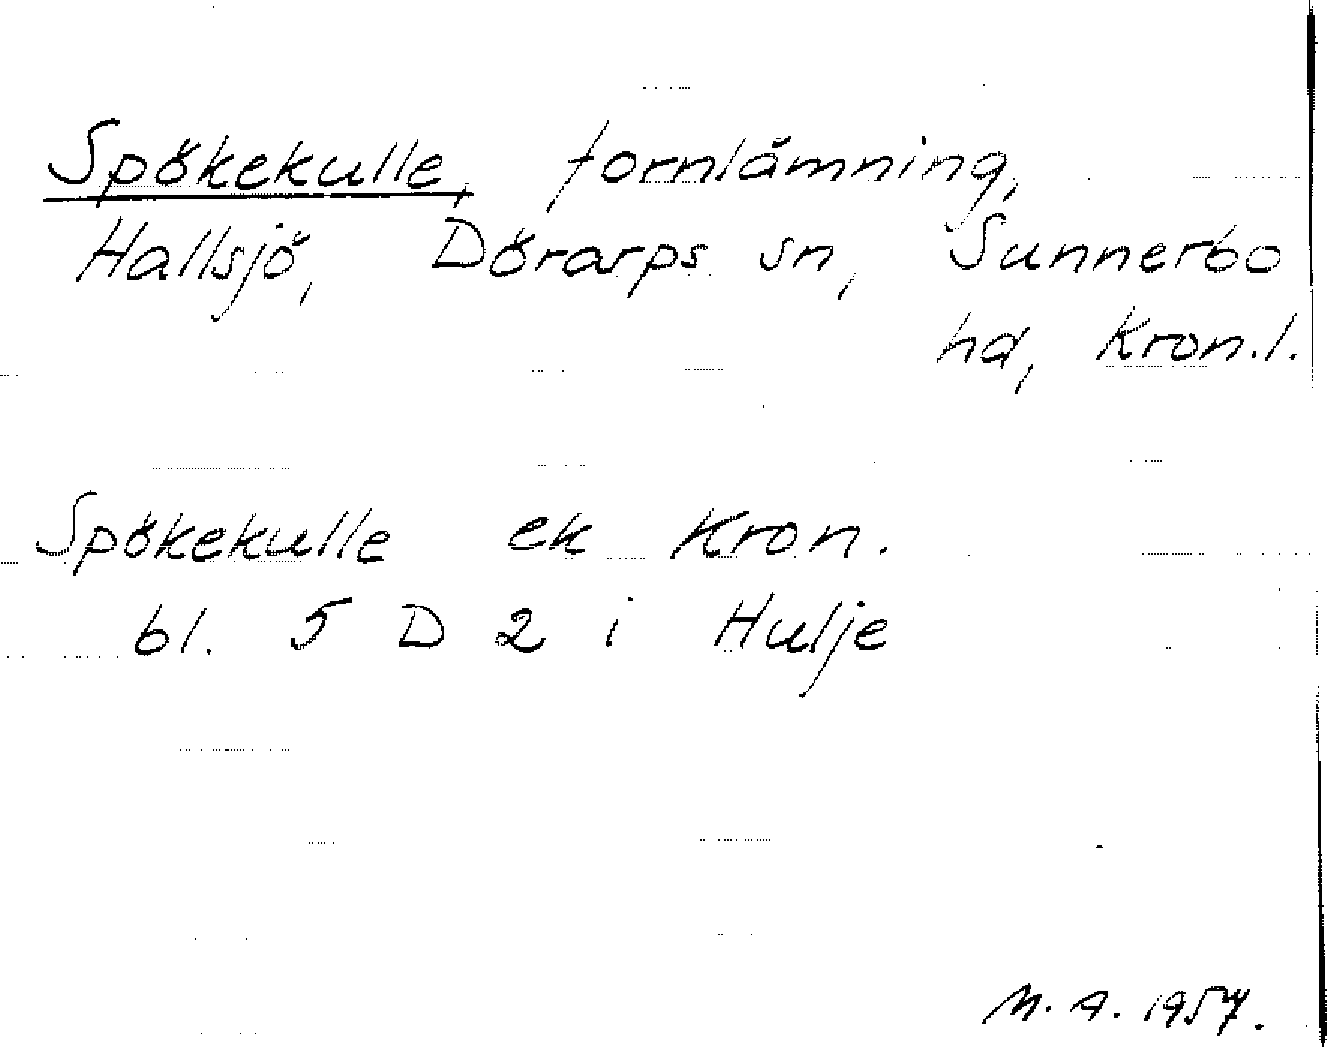 Spökekulle, fornlämning,
Hallsjö, Dörarps sn, Sunnerbo
hd, Kron.l.
Spökekulle ek Kron.
bl. 5 D 2 i Hulje
M. A. 1957.